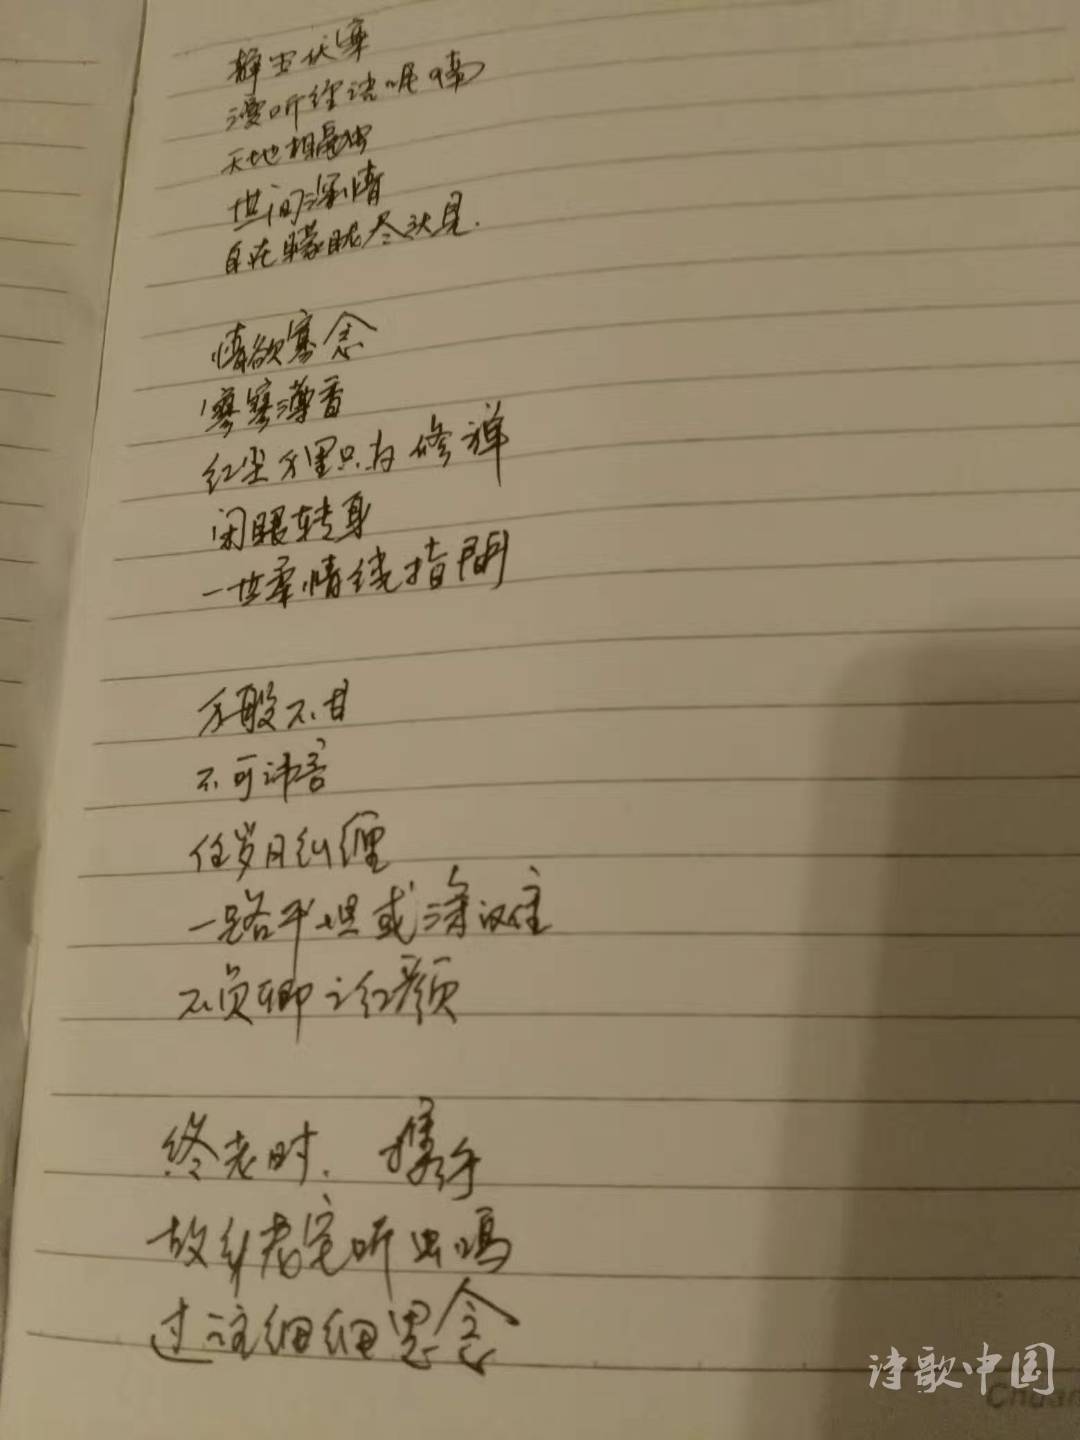 漫听经语呢喃
天地相
世间深情
自在朦胧尽头见.
情欲寡念
寥寥薄香
红尘万里只为修禅
闭眼转身
一世牵情绕指间
万般不甘
不可讳言
任岁月纠缠
一路平坦或
不负卿之红颜
终老时. 携手
故乡老宅听虫鸣
过往细细思念
诗歌中国
Chuan